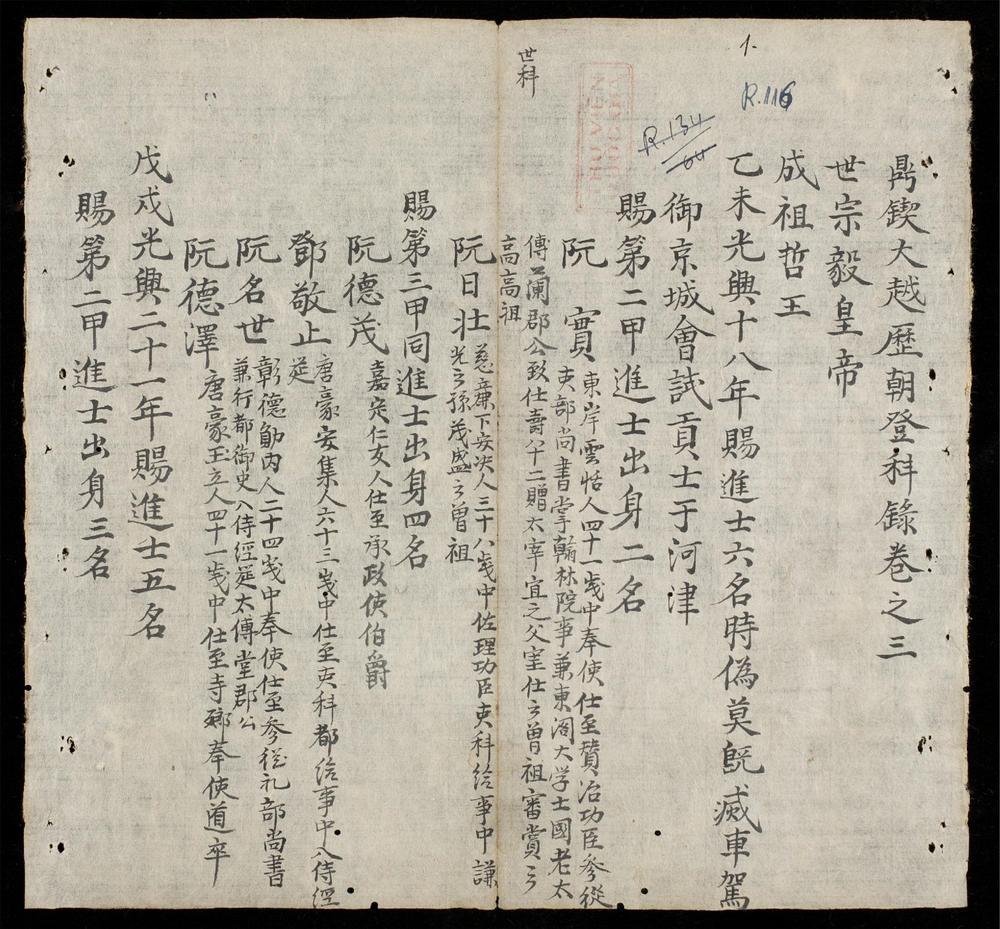 1.
R.116
R.134
64
世科
鼎鍥大越歷朝登科錄卷之三
世宗毅皇帝
成祖哲王
乙未光興十八年賜進士六名時偽莫既滅車駕
御京城會試貢士于河津
賜第二甲進士出身二名
阮實東岸雲恬人四十一歲中奉使仕至贊治功臣參從
吏部尚書掌翰林院事兼東閣大学士國老太
傅蘭郡公致仕壽八十二贈太宰宜之父室仕之曾祖審賞之
高高祖
阮日壯慈廉下安决人三十八歲中佐理功臣吏科給事中謙
光之孫茂盛之曾祖
賜第三甲同進士出身四名
阮德茂嘉定仁友人仕至承政使伯爵
鄧敬止唐豪安集人六十三歲中仕至吏科都给事中入侍經
筵
阮名世彰德勛內人二十四歲中奉使仕至參從礼部尚書
兼行都御史入侍經筵太傅堂郡公
阮德澤唐豪玉立人四十一歲中仕至寺卿奉使道卒
戊戌光興二十一年賜進士五名
賜第二甲進士出身三名